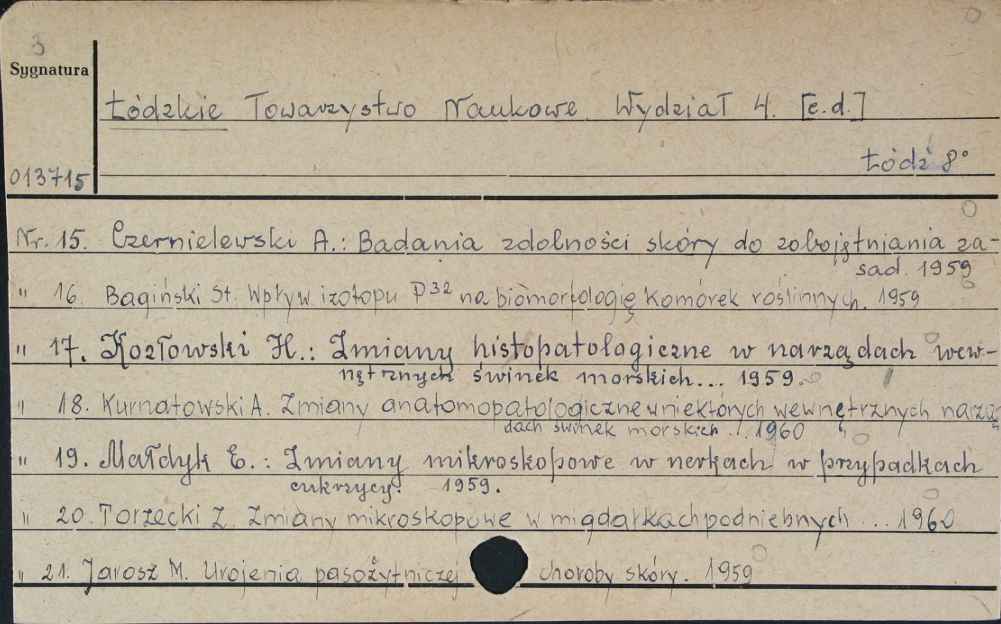 3
Sygnatura
Łódzkie Towarzystwo Naukowe. Wydział 4. [c.d.]
Łódź 8°
013715
Nr. 15. Czernielewski A.: Badania zdolności skóry do zobojętniania za-
sad. 1959
" 16. Bagiński St. Wpływ izotopu P32 na biomorfologię komórek roślinnych. 1959
" 17. Kozłowski H.: Zmiany histopatologiczne w narządach wew-
nętrznych świnek morskich... 1959.
" 18. Kurnatowski A. Zmiany anatomopatologiczne w niektórych wewnętrznych narzą
dach świnek morskich ... 1960
" 19. Małdyk E.: Zmiany mikroskopowe w nerkach w przypadkach
cukrzycy. 1959.
" 20. Torzecki Z. Zmiany mikroskopowe w migdałkach podniebnych ... 1960
" 21. Jarosz M. Urojenia pasożytniczej choroby skóry. 1959